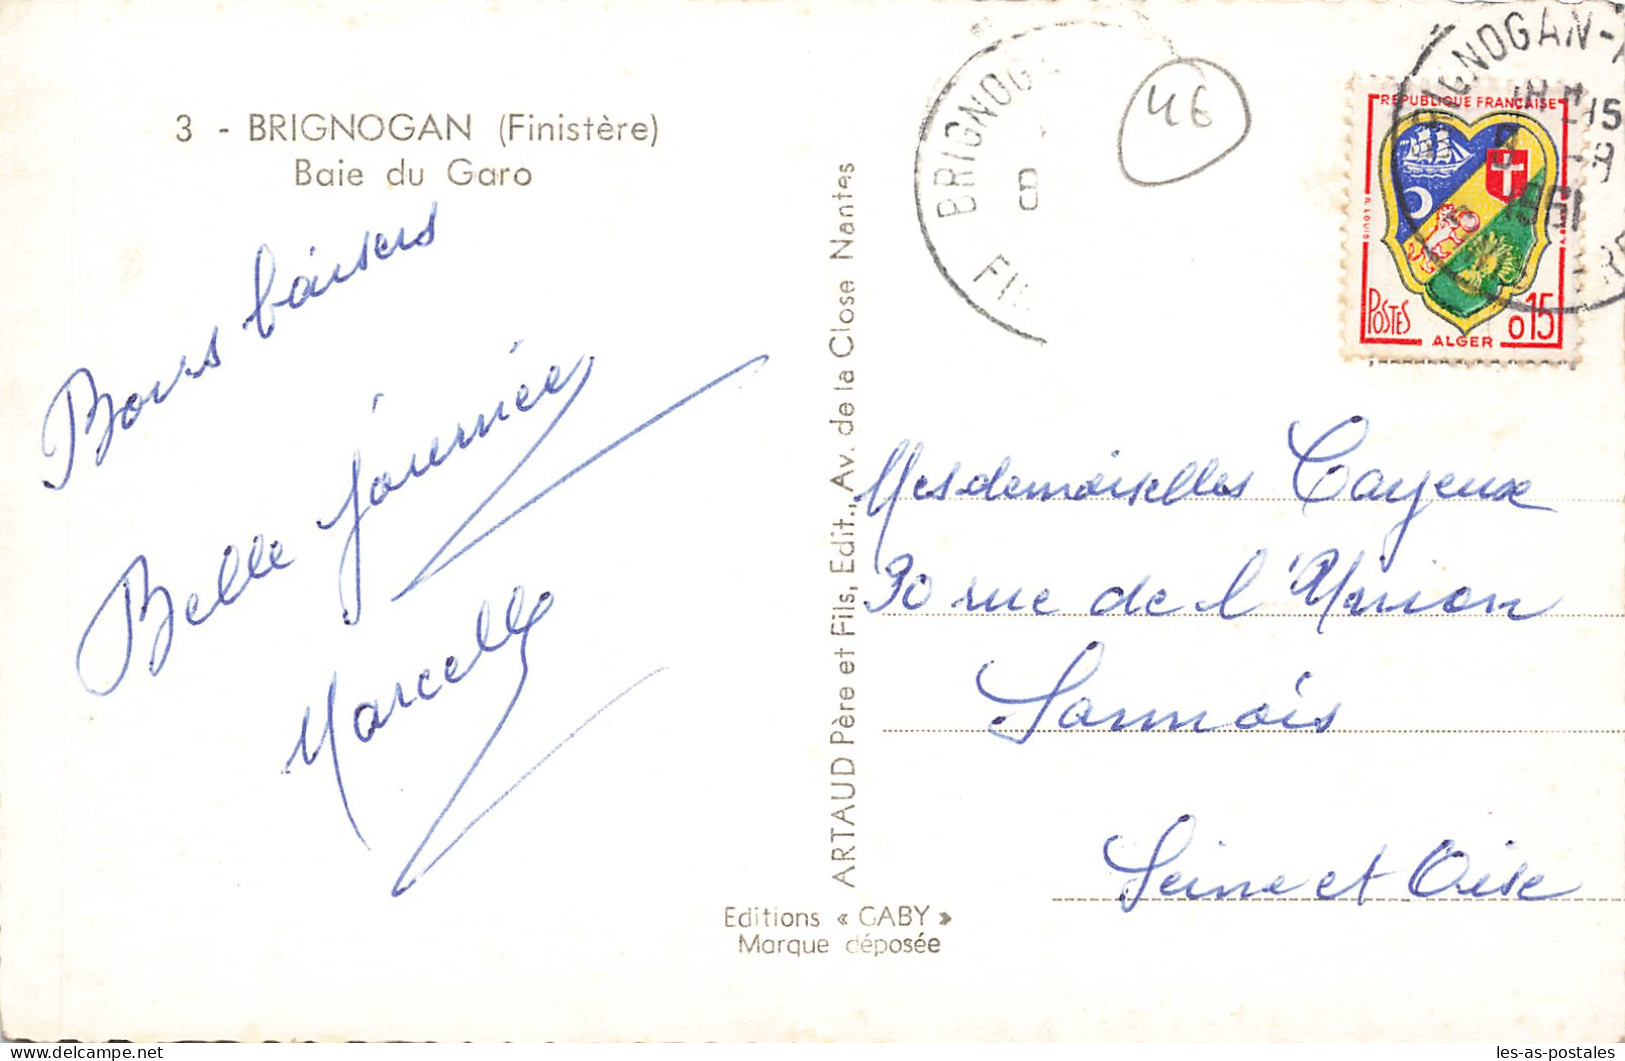 3 - BRIGNOGAN (Finistère)
Baie du Garo
Bons baisers
Belle journée
Marcelle
ARTAUD Père et Fils, Edit., Av. de la Close Nantes
Editions « GABY »
Marque déposée
BRIGNOG
8
FI
46
RÉPUBLIQUE FRANÇAISE
POSTES
0,15
ALGER
IGNOGAN-
1961
Mesdemoiselles Cayeux
90 rue de l'Union
Sannois
Seine et Oise
les-as-postales